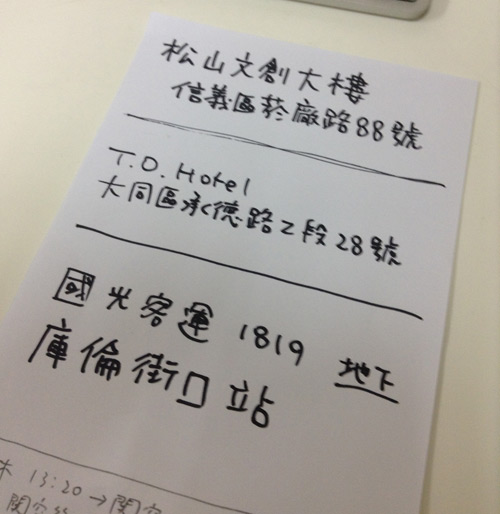 松山文創大樓
信義區菸廠路88號
T.D. Hotel
大同區承德路2段28號
國光客運 1819 地下
庫倫街口站
13:20→関空
関空